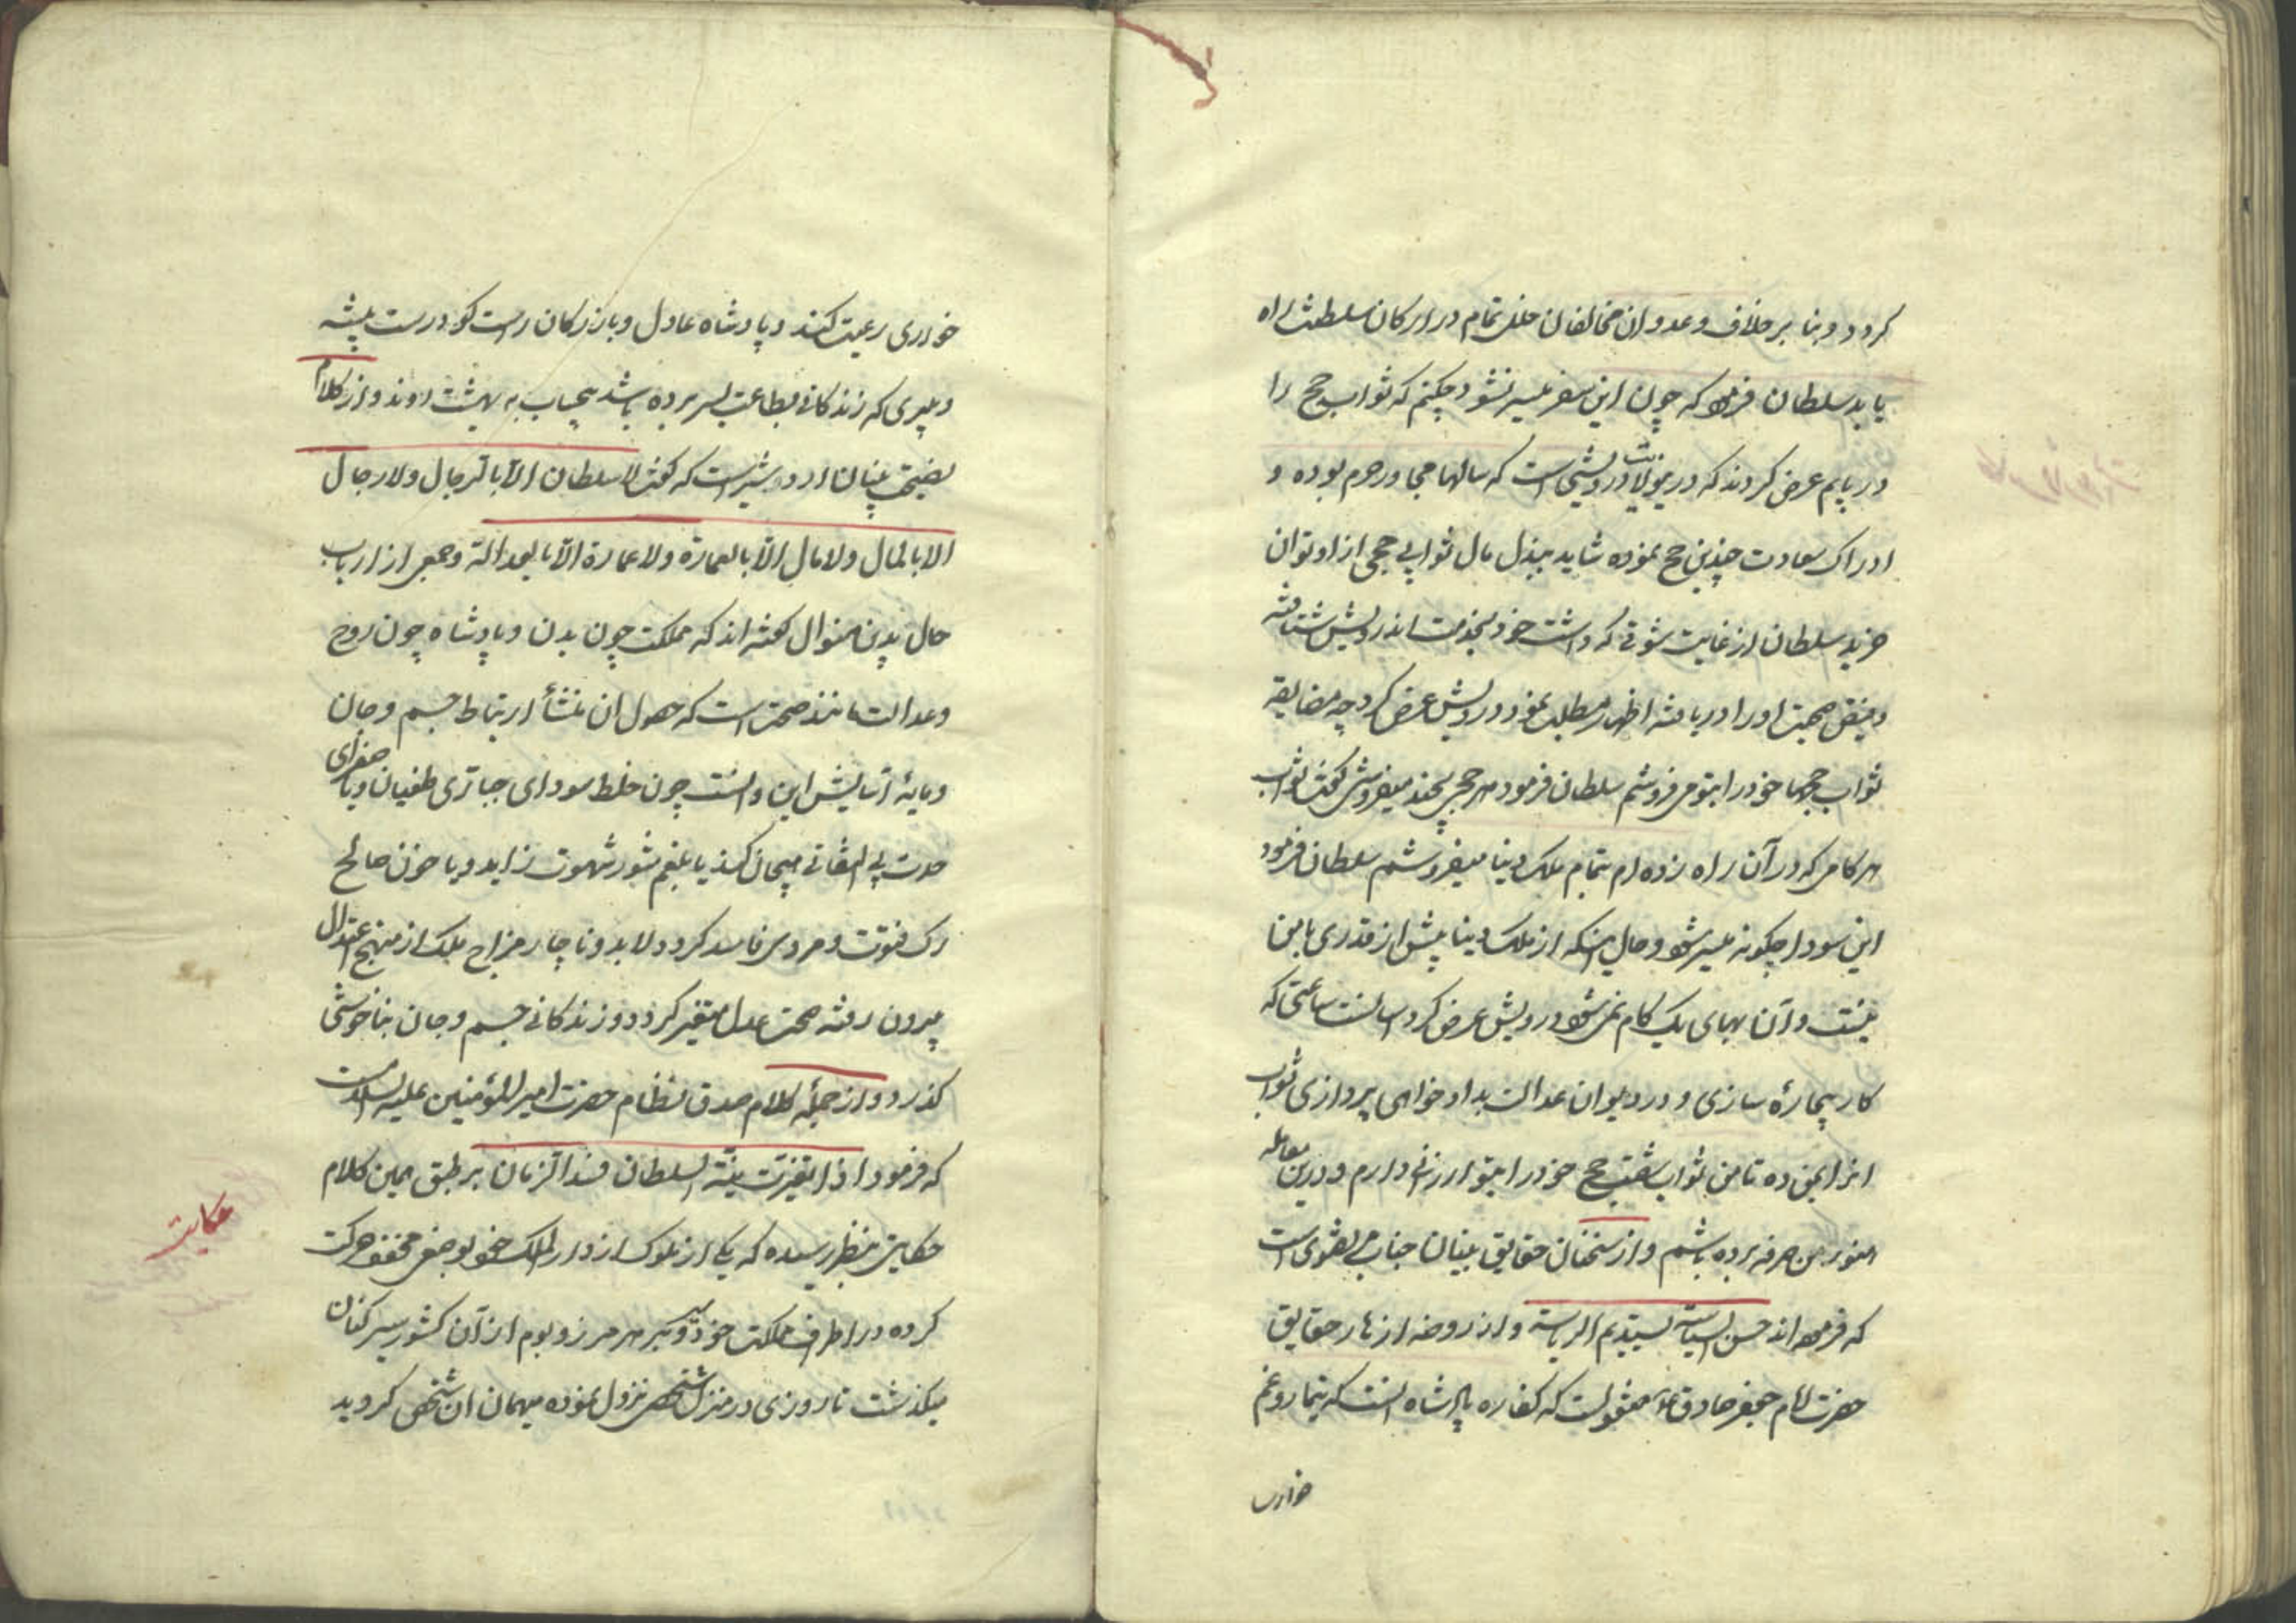 کردد و بنا بر خلاف و عدوان مخالفان خلل تمام در ارکان سلطنت راه
یابد سلطان فرمود که چون این سفر میسر نشود چکنم که ثواب حج را
دریابم عرض کردند که درین ولایت درویشی است که سالها مجاور حرم بوده و
ادراک سعادت چندین حج نموده شاید ببذل مال ثوابی حجی از او توان
خرید سلطان از غایت شوقی که داشت خود بخدمت اندرویش شتافته
و بفیض صحبت او را دریافته اظهار مطلب نمود درویش عرض کرد چه مضایقه
ثواب حجها خود را بتو میفروشم سلطان فرمود هر حجی بچند میفروشی گفت ثواب
هر کامی که در آن راه زده ام بتمام ملک دینا میفروشم سلطان فرمود
این سودا چکونه میسر شود و حال اینکه از ملک دینا بیش از قدری با من
نیست و آن بهای یک کام نمیشود درویش عرض کرد اسانست ساعتی که
کار بیچارهٔ سازی و در دیوان عدالت بداد خواهی پردازی ثواب
انرا بمن ده تا من ثواب شصت حج خود را بتو ارزانی دارم و درین معامله
هنوز من صرفه برده باشم و از سخنان حقایق بنیان جناب مرتضوی است
که فرموده اند حسن السیاسة یستدیم الریاسة و از روضه ازهار حقایق
حضرت امام جعفر صادق ع منقولست که کفاره پادشاه انست که تیمار و غم
خواری
خوردری رعیت کند و پادشاه عادل و بازرکان راست کو درست پیشه
و پیری که زندکانی بطاعت بسر برده باشد بیحساب به بهشت روند و از کلام
نصیحت بنیان اردشیر است که گفت لا سلطان الا بالرجال ولا رجال
الا بالمال ولا مال الّا بالعمارة ولا عمارة الّا بالعدالة و جمعی از ارباب
حال بدین منوال کفته اند که مملکت چون بدن و پادشاه چون روح
و عدالت مانند صحت است که حصول ان منشأ ارتباط جسم و جان
و مایهٔ آسایش این و انست چون خلط سودای جباری طغیان و یا صفرای
حدت بی التفاتی هیجان کند یا بلغم شور شهوت زاید و یا خون صالح
رک فتوت و مروت فاسد کردد لابد و ناچار مزاج ملک از منهج اعتدال
بیرون رفته صحت عدل متغیر کردد و زندکانی جسم و جان بناخوشی
کذرد و از جملهٔ کلام صدق نظام حضرت امیر المؤمنین علیه السلام است
که فرمود اذا تغیرت نیّة السلطان فسد الزمان بر طبق همین کلام
حکایت
حکایتی بنظر رسیده که یکی از ملوک از دار الملک خود بوضعی مخفف حرکت
کرده در اطراف مملکت خود سیر مرز و بوم از آن کشور سیر کنان
میکذشت تا روزی در منزل شخصی نزول نموده میهمان ان شخص کردید